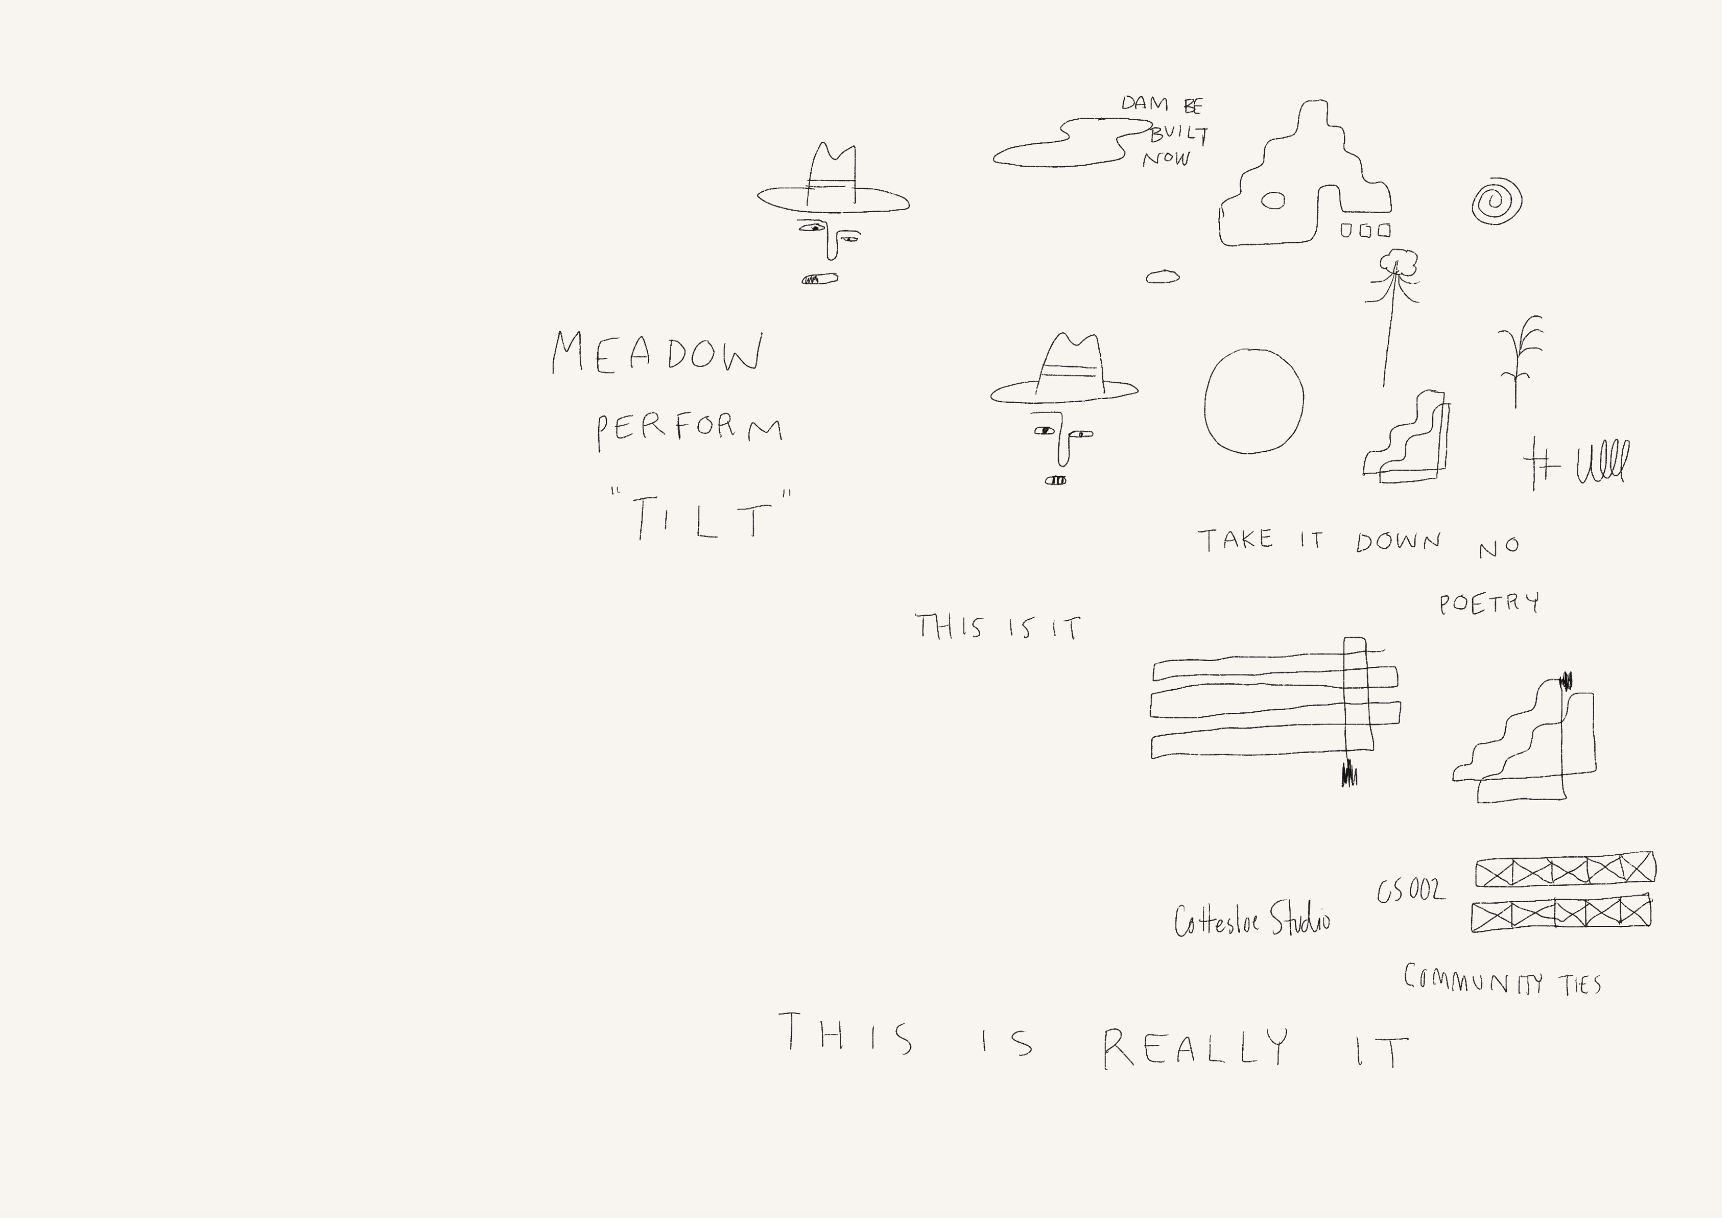 DAM BE
BUILT
NOW
MEADOW
PERFORM
"TILT"
TAKE IT DOWN NO
POETRY
THIS IS IT
CS002
Cottesloe Studio
COMMUNITY TIES
THIS IS REALLY IT